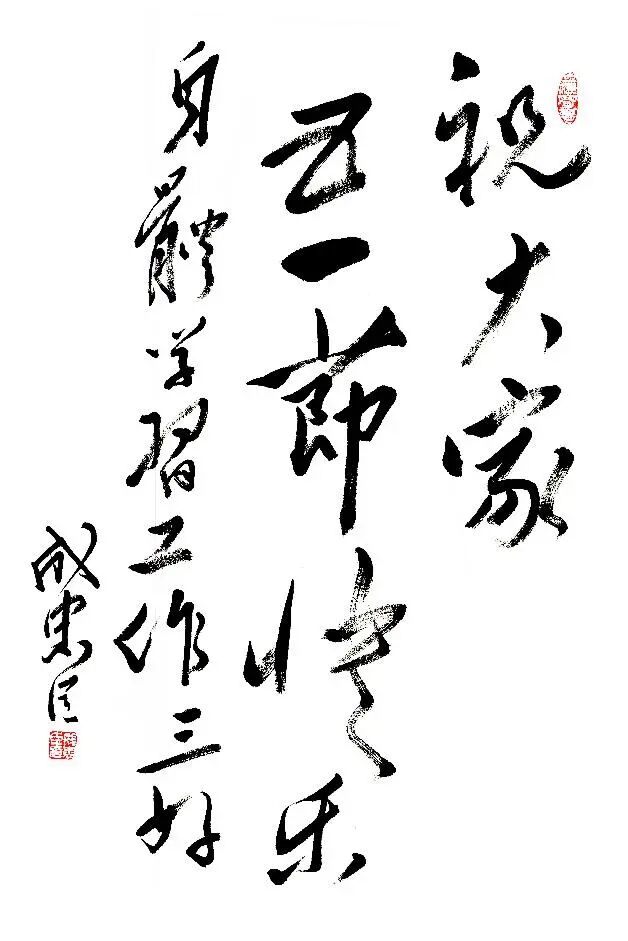 祝大家
五一節快乐
身體学習工作三好
成忠臣